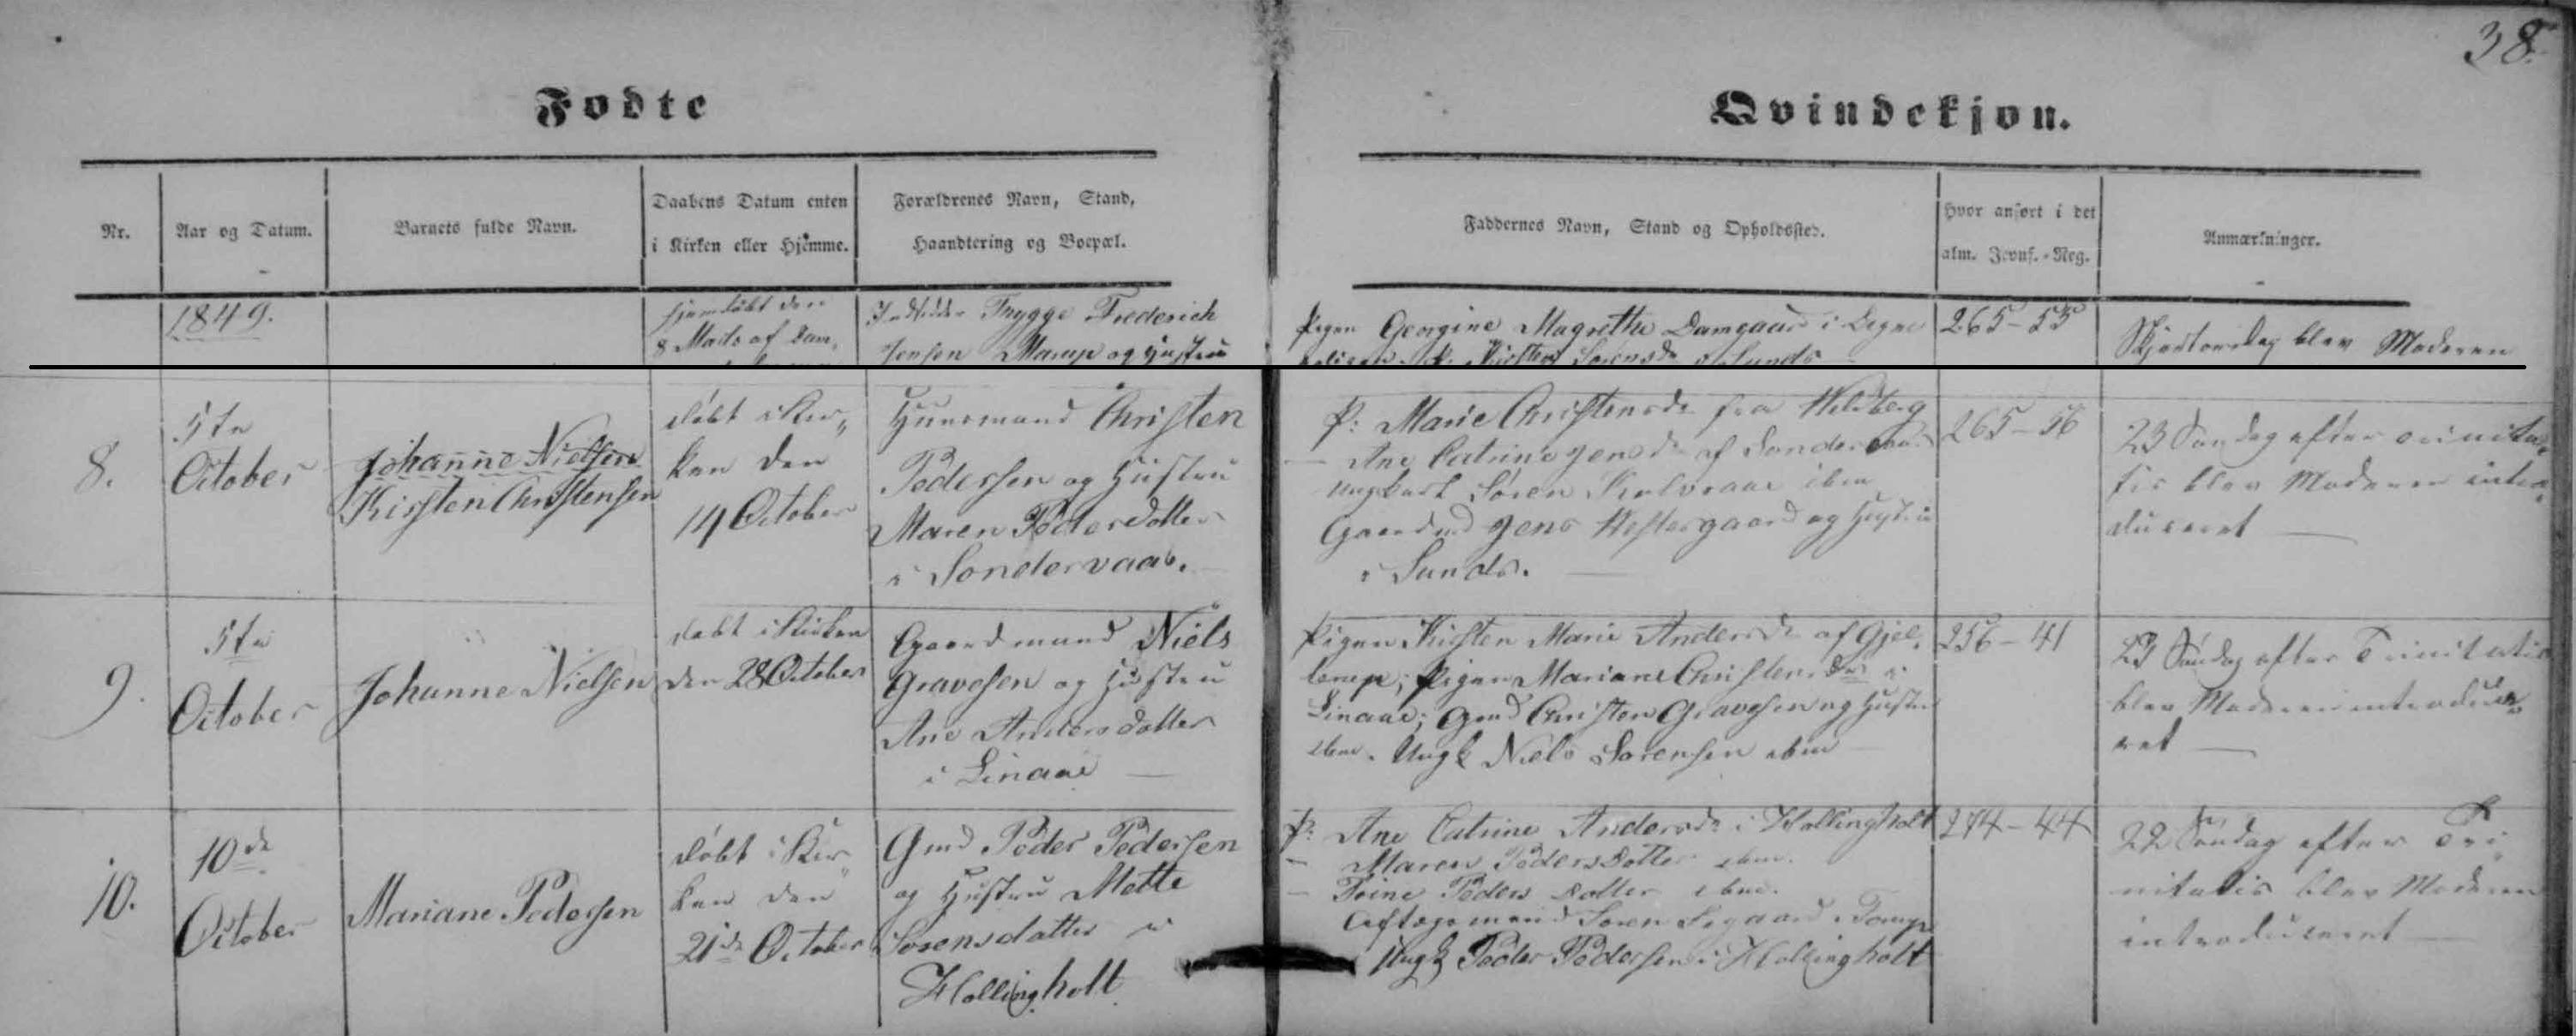 38.
Fødte
Qvindekjøn.
Nr.
Aar og Datum.
Barnets fulde Navn.
Daabens Datum enten
i Kirken eller Hjemme.
Forældrenes Navn, Stand,
Haandtering og Boepæl.
Faddernes Navn, Stand og Opholdssted.
Hvor anført i det
alm. Jevnf.-Reg.
Anmærkninger.
1849.
hjemdøbt den
8 Marts af
Trygge Frederich
Jensen Marup og Hustru
Pigen Georgine Magrethe Damgaard i
Kirsten Sørensdr i Sunds
265-55
Skjærtorsdag blev Moderen
8.
5te
October
Johanne Nielsen
Kirsten Christensen
døbt i Kir„
ken den
14 October
Huusmand Christen
Pedersen og Hustru
Maren Pedersdatter
i Søndervaab.
P: Marie Christensdr fra Hildberg
— Ane Catrine Jensdr af
Ungkarl Søren ibm
Gaardmd Jens Westergaard og Hustru
i Sunds. —
265-56
23 Søndag efter Trinita„
tis blev Moderen intro„
duceret —
9.
5te
October
Johanne Nielsen
døbt i Kirken
den 28 October
Gaardmand Niels
Gravesen og Hustru
Ane Andersdatter
i Linaae —
Pigen Kirsten Marie Andersdr af Gjel„
lerup; Pigen Mariane Christensdr i
Linaae; Gmd Christen Gravesen og Hustru
ibm. Ungk Niels Sørensen ibm
256-41
23 Søndag efter Trinitatis
blev Moderen introduce„
ret —
10.
10de
October
Mariane Pedersen
døbt i Kir„
ken den
21de October
Gmd Peder Pedersen
og Hustru Mette
Sørensdatter i
Hollingholt
P: Ane Catrine Andersdr i Hollingholt
— Maren Pedersdatter ibm.
— Peders datter ibm.
Aftægsmand Søren i
Ungk Peder Pedersen i Hollingholt
274-44
22 Søndag efter Tri„
nitatis blev Moderen
introduceret —